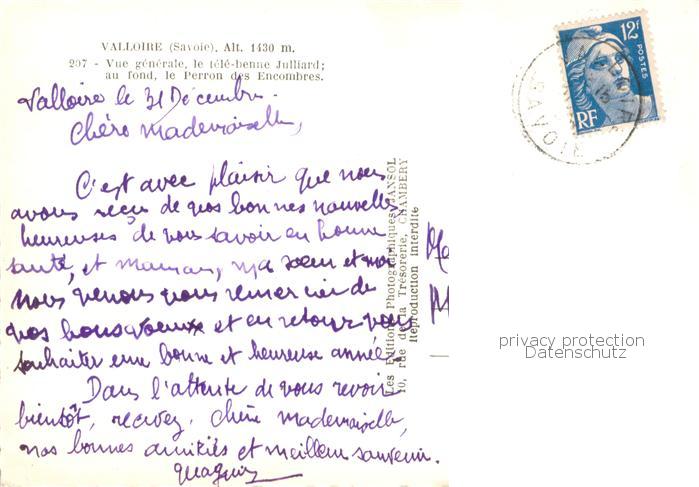 VALLOIRE (Savoie), Alt. 1430 m.
207 - Vue générale, le télé-benne Julliard;
au fond, le Perron des Encombres.
Valloire le 31 Décembre.
Chère Mademoiselle,
C'est avec plaisir que nous
avons reçus de vos bonnes nouvelles
heureuses de vous savoir en bonne
santé, et maman, ma soeur et moi
nous venons vous remercier de
vos bons voeux et en retour vous
souhaiter une bonne et heureuse année.
Dans l'attente de vous revoir
bientôt, recevez, chère mademoiselle,
nos bonnes amitiés et meilleur souvenir.
Les Editions Photographiques JANSOL
10, rue de la Trésorerie, CHAMBERY
Reproduction interdite
12F
POSTES
RF
SAVOIE
privacy protection
Datenschutz